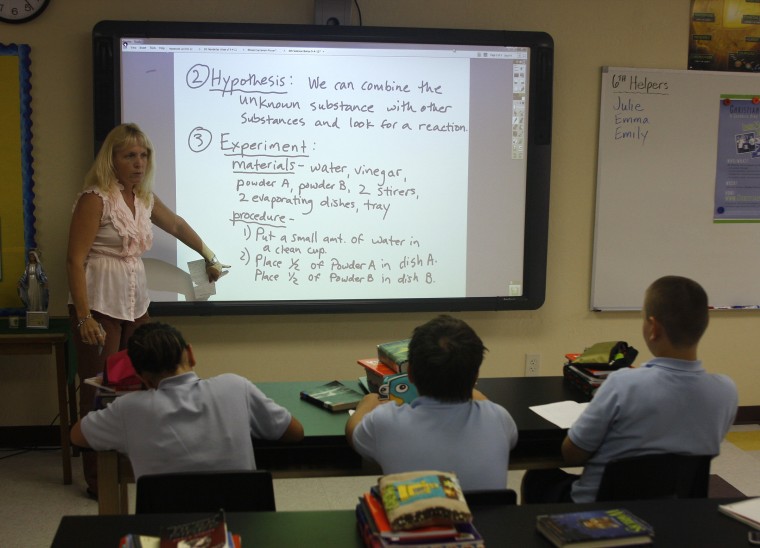 ② Hypothesis: We can combine the
unknown substance with other
substances and look for a reaction.
③ Experiment:
materials - water, vinegar,
powder A, powder B, 2 stirers,
2 evaporating dishes, tray
procedure -
1) Put a small amt. of water in
a clean cup.
2) Place 1/2 of Powder A in dish A.
Place 1/2 of Powder B in dish B.
6TH Helpers
Julie
Emma
Emily